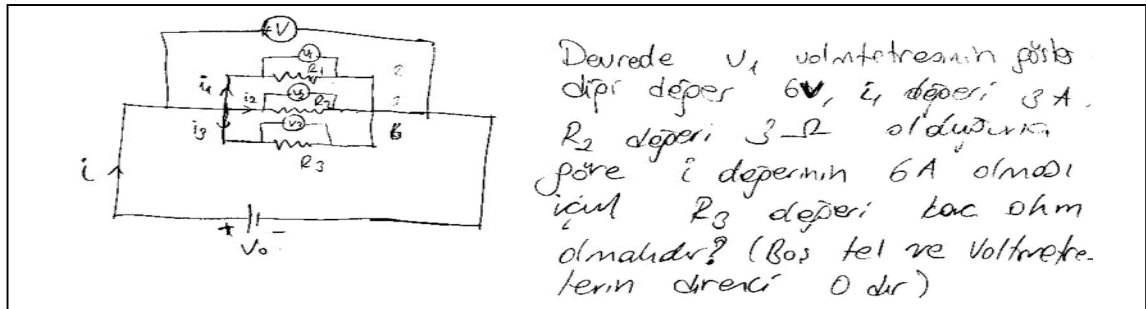 V
V1
R1
i1
i2
V2
R2
i3
V3
R3
i
+ -
V0
2
2
6
Devrede V1 voltmetresinin göster
diği değer 6V, i1 değeri 3 A.
R2 değeri 3 Ω olduğuna
göre i değerinin 6A olması
için R3 değeri kac ohm
olmalıdır? (Boş tel ve Voltmetre-
lerin direnci 0 dır)